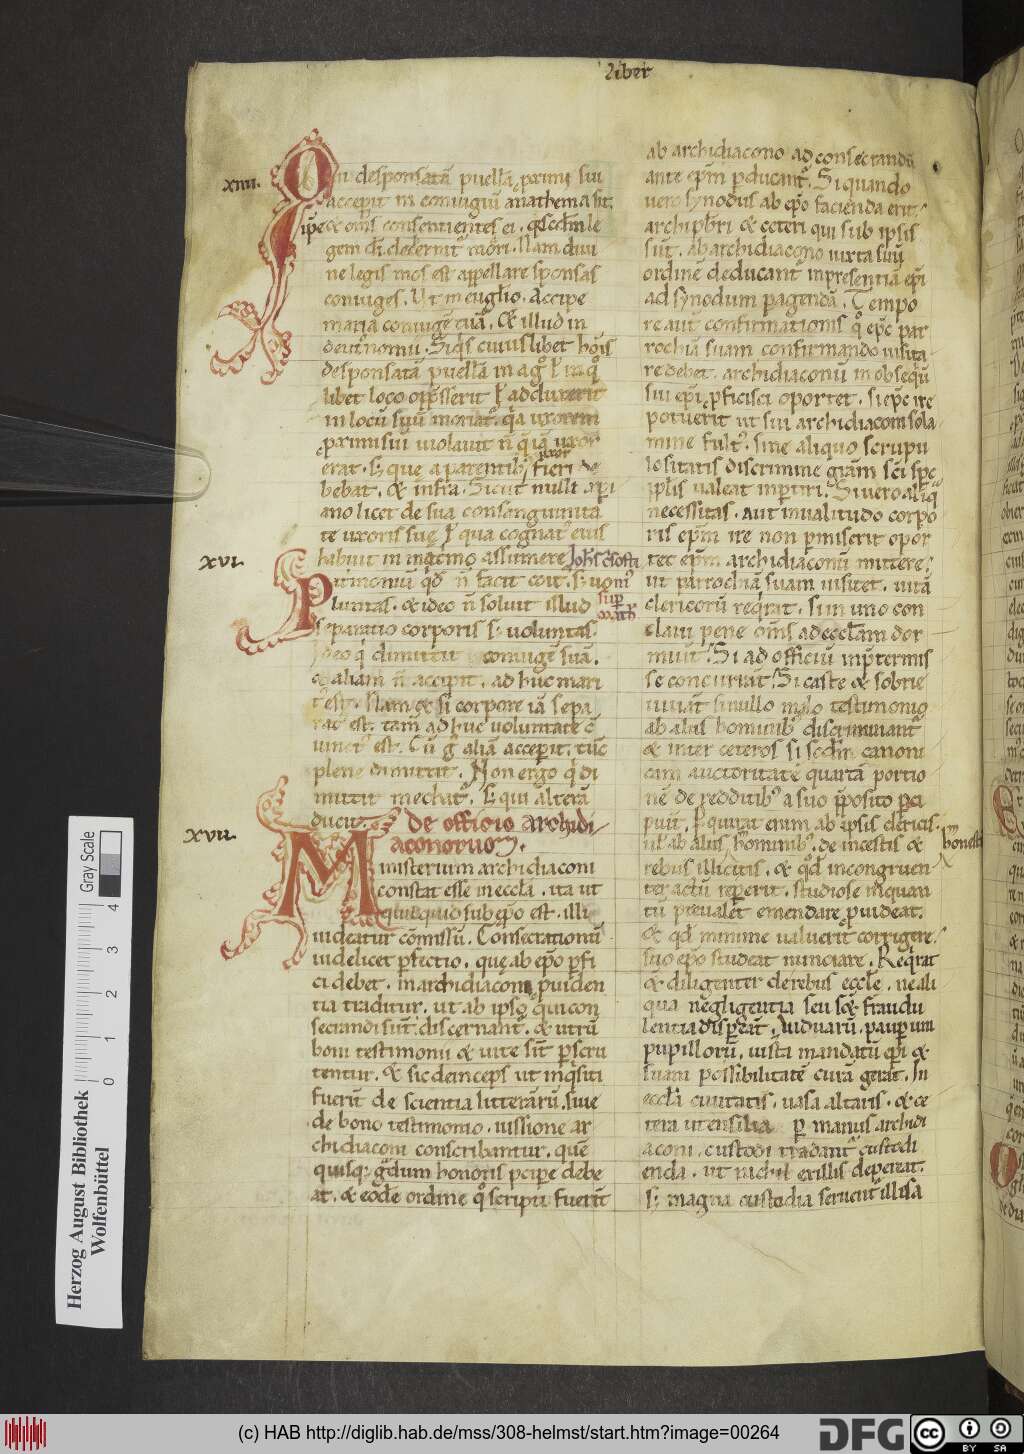 liber
xiiii.
Qui desponsatā puellā pximi sui
acceperit in coniugiū anathema sit.
ipse & om̄s consentientes ei. q̄ scd̄m le
gem di. decernunt mori. Nam diui
ne legis mos est appellare sponsas
coniuges. Ut in euglio. Accipe
maria coniugē tuā. & illud in
deutronomii. Siqs cuiuslibet hōis
desponsatā puellā in agro
libet loco oppsserit ł adduxerit
in locū suū moriatr. qa uxorem
pximi sui uiolauit n̄ qa iā uxor
erat. Sz que a parentibz uxor fieri de
bebat. & infra. Sicut nulli xpi
ano licet de sua consanguinita
te uxoris sue ł qua cognatꝰ eius
habuit in matrimo assumere Johs cisosto
xvi.
mꝰ sup math
Matrimoniū qd n̄ facit coit. sz uo
luntas. & ideo n̄ soluit illud
separatio corporis sz uoluntas.
Ideo q dimittit coniugē suā.
& aliam n̄ accipit. ad huc mari
tꝰ est. Nam & si corpore iā sepa
ratꝰ est. tam̄ ad huc uoluntate c̄
iunctꝰ est. Cū g aliā acceperit. tūc
plene dimittit. Non ergo q di
mittit mechatr. Sz qui alterā
ducit.
xvii.
de officio archidi
aconorum.
Ministerium archidiaconi
constat esse in eccl̄a. ita ut
quicquid sub epo est. illi
uideatur cōmissū. Consecrationū
uidelicet pfectio. quę ab epo pfi
ci debet. in archidiaconi puiden
tia traditur. ut ab ipso qui con
secrandi sūt. discernantr. & utrū
boni testimonii & uite sīt pscru
tentur. & sic deinceps ut inqsiti
fuerit de scientia litterarū. siue
de bono testimonio. iussione ar
chidiaconi conscribantur. quē
quisqz gradum honoris pcipe debe
at. & eode ordine qo scripti fuerit
ab archidiacono ad consecrandū
ante epm pducantr. Si quando
uero synodus ab epo facienda erit.
archipbri & ceteri qui sub ipsis
sūt. ab archidiacono iuxta suū
ordinē deducant in presentiā epi
ad synodum pagendā. Tempo
re aut confirmationis qo epc par
rochiā suam confirmando uisita
re debet. archidiaconū in obsequiū
sui epi pficisci oportet. si epc ire
potuerit ut sui archidiaconi sola
mine fultꝰ. sine aliquo scrupu
lositatis discrimine gram sci spc
ipsis ualeat inptiri. Si uero aliq
necessitas. aut inualitudo corpo
ris epm ire non pmiserit opor
tet epm archidiaconū mittere.
ut parrochiā suam uisitet. uitā
clericorū reqrat. si in uno con
claui pene om̄s ad eccl̄am dor
miūt. Si ad officiū inptermis
se concurrāt. Si caste & sobrie
uiuāt. si nullo malo testimonio
ab aliis hominibꝰ discriminantr
& inter ceteros si scdm canoni
cam auctoritatē quartā portio
nē de redditibꝰ a suo pposito pci
piūt. Pquirat etiam ab ipsis clericis.
ul ab aliis hominibꝰ. de incestis & honestis
rebus illicitis. & qd incongruen
ter actū reperit. studiose inquan
tū preualet emendare puideat.
& qd minime ualuerit corrigere.
suo epo studeat nunciare. Reqrat
& diligenter de rebus eccl̄e. ne ali
qua negligentia seu fraudu
lentia dispeāt. uiduarū. paupum
pupillorū. iusti mandatū epi &
suam possibilitatē curā gerat. In
eccl̄a ciuitatis. uasa altaris. & ce
tera utensilia p manus archidi
aconi. custodi tradant custodi
enda. ut nichil ex illis depereat.
sz magna custodia seruentr illi sa
Gray Scale
4
3
2
1
0
Herzog August Bibliothek
Wolfenbüttel
(c) HAB http://diglib.hab.de/mss/308-helmst/start.htm?image=00264
DFG
cc
BY SA